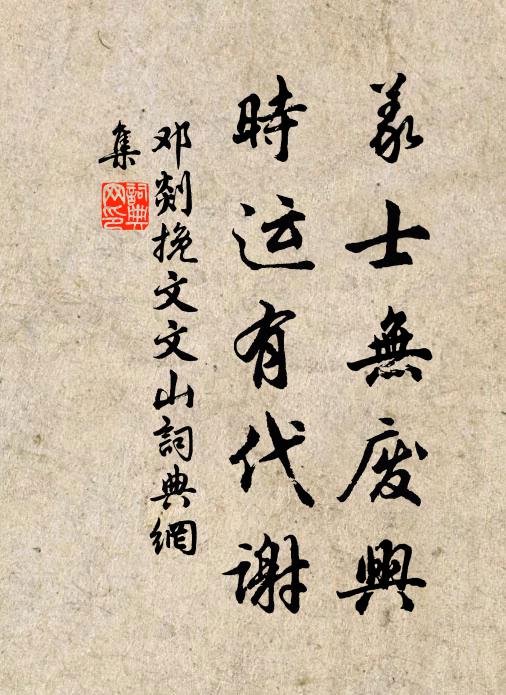 義士無废興
時运有代谢
邓剡挽文文山詞典網
集
詞典
网印